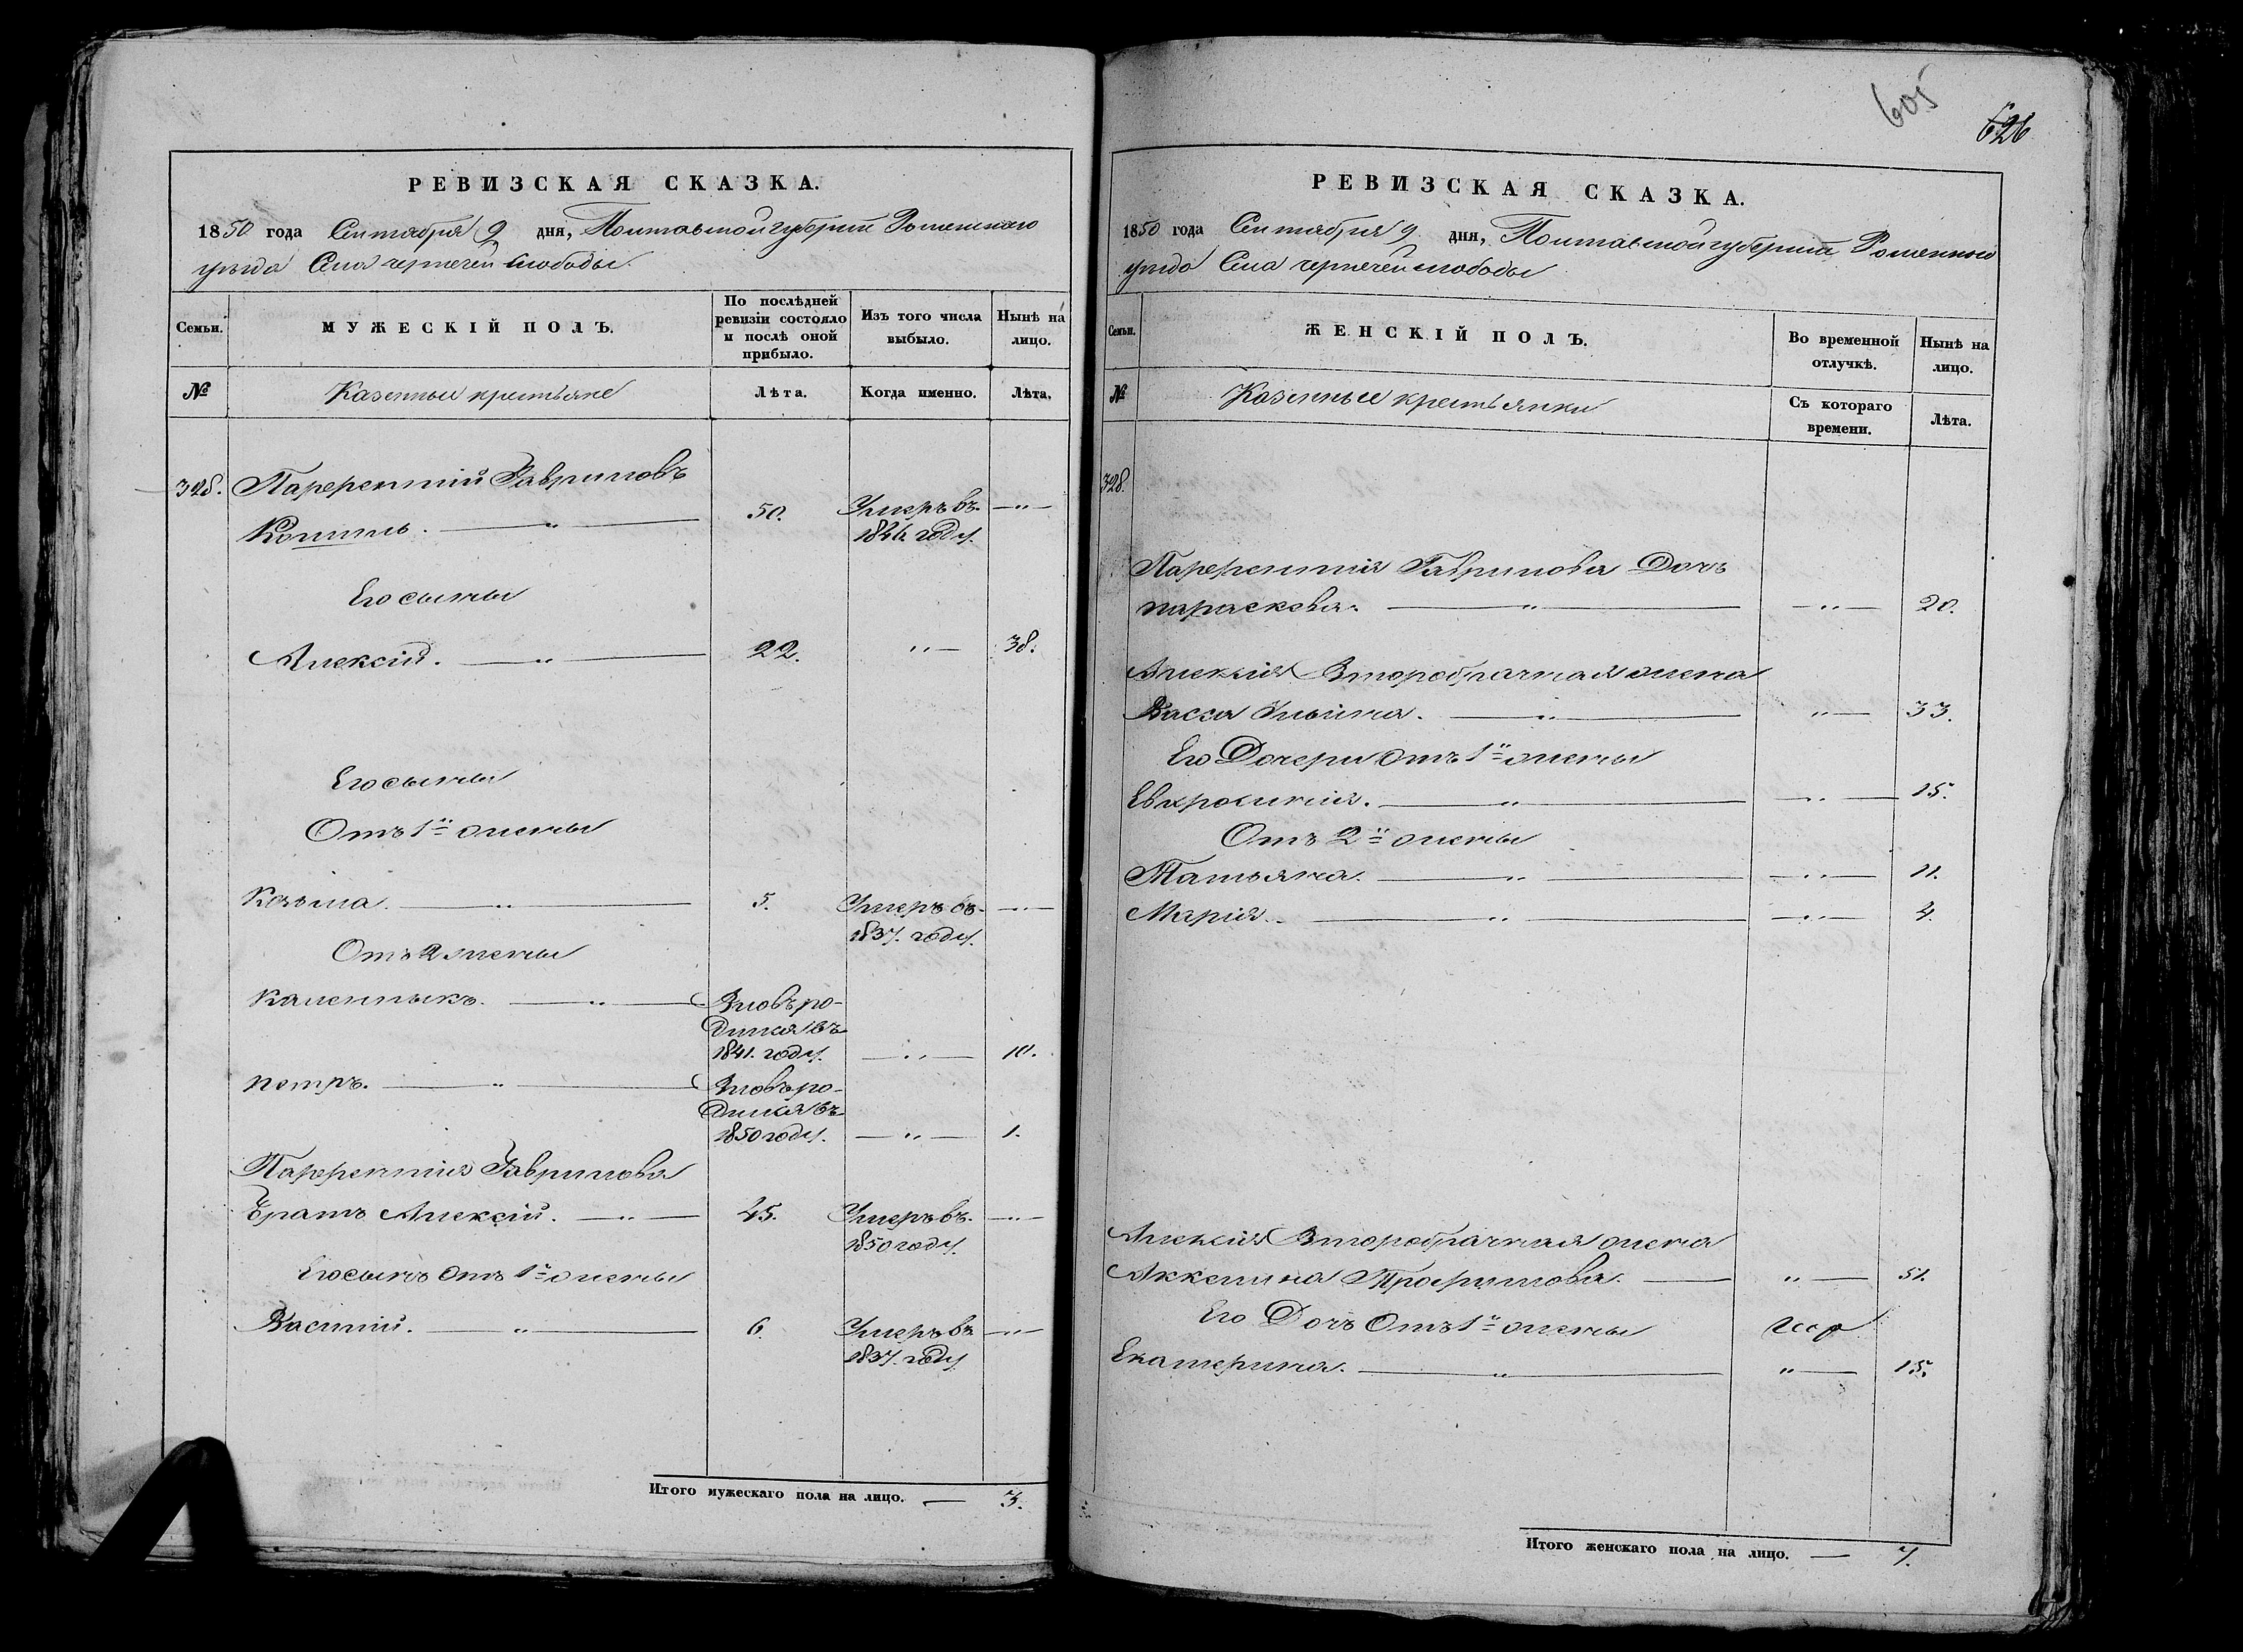 РЕВИЗСКАЯ СКАЗКА.
1850 года Сентября 9 дня, Полтавской губерніи Роменскаго
уѣзда Села чернечей слободы.
Семьи.
МУЖЕСКІЙ ПОЛЪ.
По послѣдней
ревизіи состояло
и послѣ оной
прибыло.
Изъ того числа
выбыло.
Нынѣ на
лицо.
№
Казенные крестьяне
Лѣта.
Когда именно.
Лѣта.
328. Парфентій Гавриловъ
50. Умеръ въ
1846. году.
Его сыны
Алексій. 22. 38.
Его сыны
Отъ 1й жены
Козьма. 5. Умеръ въ
1837. году.
Отъ 2 жены
Каленикъ. Вновь ро-
дился въ
1841. году. 10.
петръ. Вновь ро-
дился въ
1850 году. 1.
Парфентія Гаврилова
братъ Алексій. 45. Умеръ въ
1850 году.
Его сынъ отъ 1й жены
Василій. 6. Умеръ въ
1837. году.
Итого мужескаго пола на лицо. — 3.
605
626
РЕВИЗСКАЯ СКАЗКА.
1850 года Сентября 9 дня, Полтавской губерніи Роменскаго
уѣзда Села чернечей слободы
Семьи.
ЖЕНСКІЙ ПОЛЪ.
Во временной
отлучкѣ.
Нынѣ на
лицо.
№
Казенные крестьянки
Съ котораго
времени.
Лѣта.
328.
Парфентія Гаврилова Дочь
параскева. 20.
Алексія Второбрачная жена
Васса Ильина. 33.
Его Дочери Отъ 1й жены
Евфросинія. 15.
Отъ 2й жены
Татьяна. 11.
Марія. 4.
Алексія Второбрачная жена
Аккелина Трофимова. 51.
Его Дочь Отъ 1й жены
Екатерина. 15.
Итого женскаго пола на лицо. — 7.